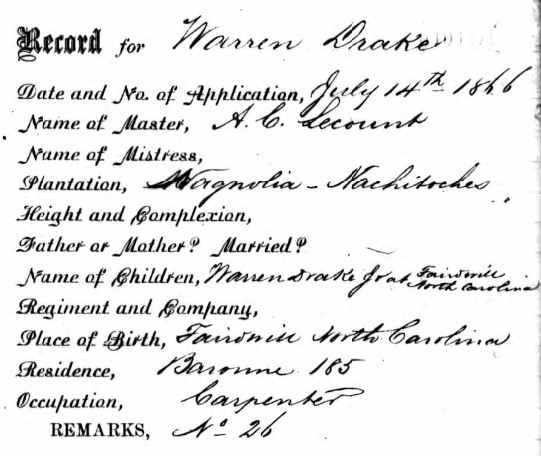 Record for Warren Drake
Date and No. of Application, July 14th 1866
Name of Master, A. C. Lecount
Name of Mistress,
Plantation, Magnolia - Nachitoches
Height and Complexion,
Father or Mother? Married?
Name of Children, Warren Drake Jr at Fairdwill North Carolina
Regiment and Company,
Place of Birth, Fairdwill North Carolina
Residence, Baronne 185
Occupation, Carpenter
REMARKS, No 26